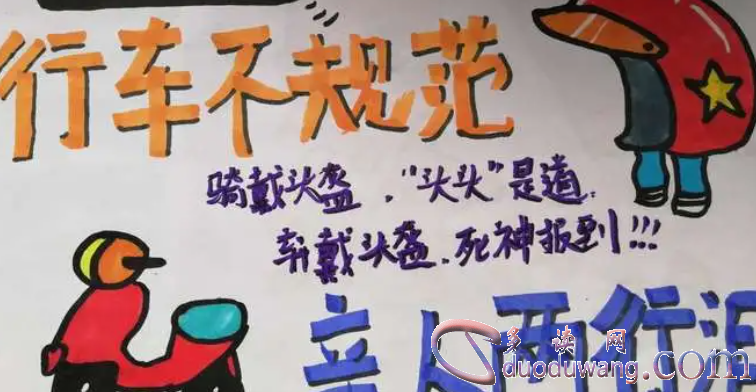 行车不规范
骑戴头盔，“头头”是道.
戴头盔，死神报到!!!
亲人两行泪
多读网
duoduwang.com